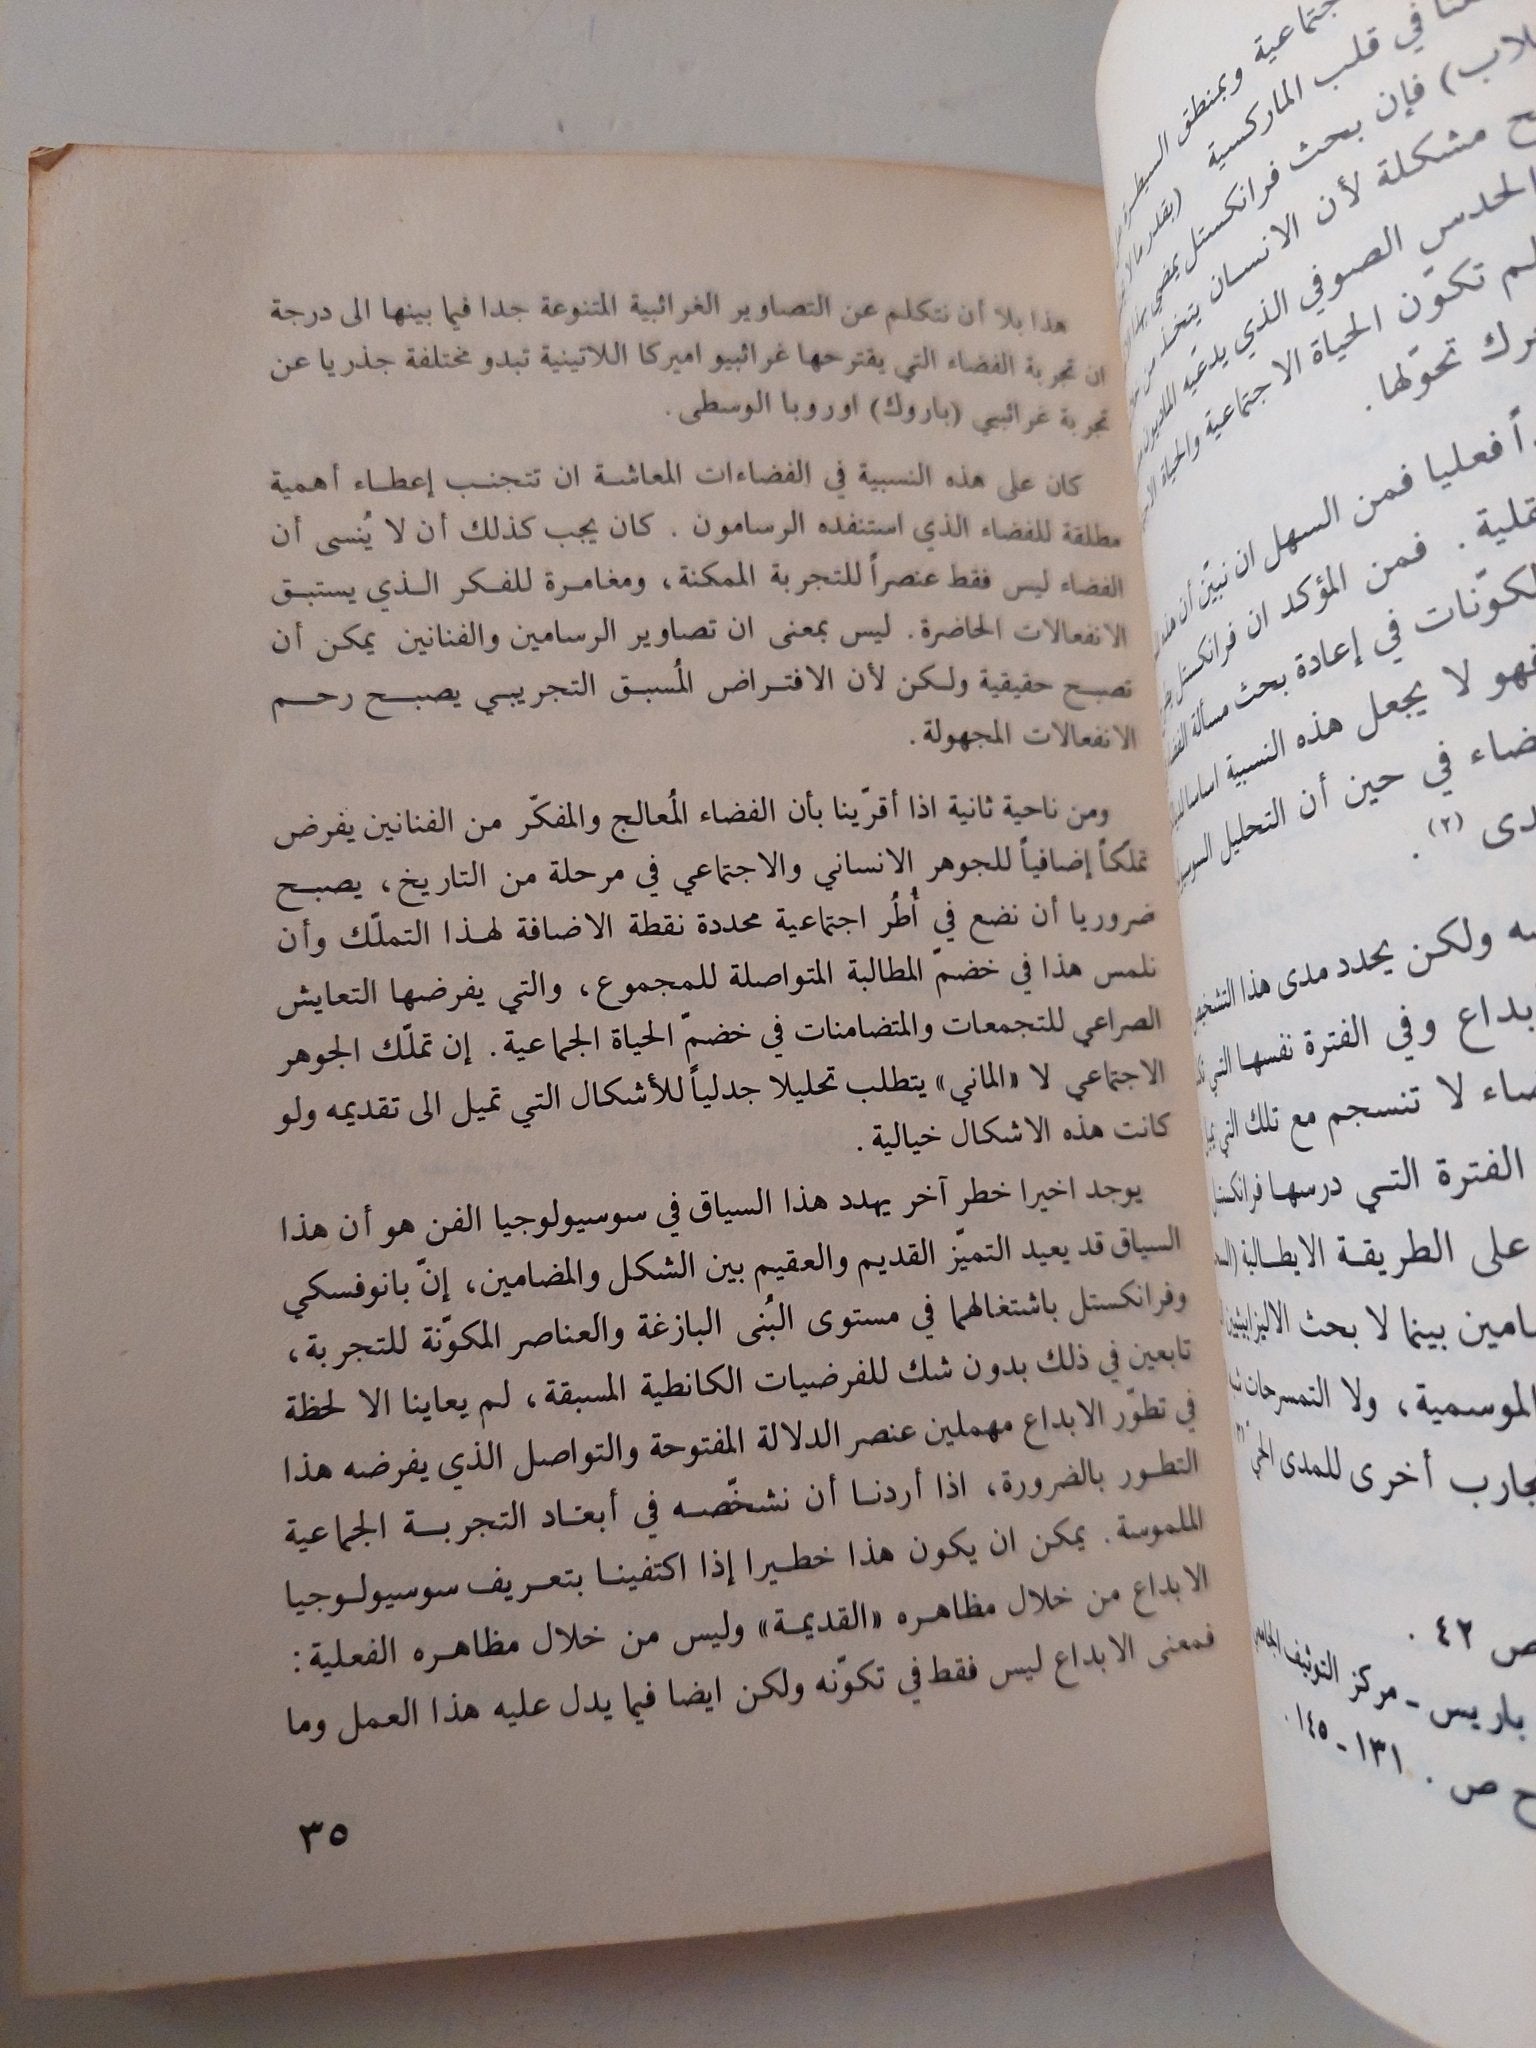 جتماعية وبمنطق السيطرة
في قلب الماركسية
لاب) فإن بحث فرانكستل يمضي
ح مشكلة لأن الانسان يتخذ من
الحدس الصوفي الذي يدعيه
لم تكوّن الحياة الاجتماعية والحياة
رك تحوّلها .
اً فعليا فمن السهل ان نبيّن أن هذه
قلية . فمن المؤكد ان فرانكستل
لكوّنات في إعادة بحث مسألة
فهو لا يجعل هذه النسبية اساسا
ضاء في حين أن التحليل
دى (٢) .
ه ولكن يحدد مدى هذا
بداع وفي الفترة نفسها التي
ضاء لا تنسجم مع تلك التي
الفترة التي درسها فرانكستل
على الطريقة الايطالية
امين بينما لا بحث
الموسمية، ولا التمسرحات
تجارب أخرى للمدى الحي
ص ٤٢ .
باريس - مركز التوثيف
ح ص . ١٣١ - ١٤٥ .
هذا بلا أن نتكلم عن التصاوير الغرائبية المتنوعة جدا فيما بينها الى درجة
ان تجربة الفضاء التي يقترحها غرائبيو اميركا اللاتينية تبدو مختلفة جذريا عن
تجربة غرائبيي (باروك) اوروبا الوسطى .
كان على هذه النسبية في الفضاءات المعاشة ان تتجنب إعطاء أهمية
مطلقة للفضاء الذي استنفده الرسامون . كان يجب كذلك أن لا يُنسى أن
الفضاء ليس فقط عنصراً للتجربة الممكنة، ومغامرة للفكر الذي يستبق
الانفعالات الحاضرة. ليس بمعنى ان تصاوير الرسامين والفنانين يمكن أن
تصبح حقيقية ولكن لأن الافتراض المُسبق التجريبي يصبح رحم
الانفعالات المجهولة .
ومن ناحية ثانية اذا أقرّينا بأن الفضاء المُعالج والمفكّر من الفنانين يفرض
تملّكاً إضافياً للجوهر الانساني والاجتماعي في مرحلة من التاريخ، يصبح
ضروريا أن نضع في أُطُر اجتماعية محددة نقطة الاضافة لهذا التملّك وأن
نلمس هذا في خضمّ المطالبة المتواصلة للمجموع، والتي يفرضها التعايش
الصراعي للتجمعات والمتضامنات في خضمّ الحياة الجماعية. إن تملّك الجوهر
الاجتماعي لا «الماني» يتطلب تحليلا جدلياً للأشكال التي تميل الى تقديمه ولو
كانت هذه الاشكال خيالية .
يوجد اخيرا خطر آخر يهدد هذا السياق في سوسيولوجيا الفن هو أن هذا
السياق قد يعيد التميّز القديم والعقيم بين الشكل والمضامين، إنّ بانوفسكي
وفرانكستل باشتغالهما في مستوى البُنى البازغة والعناصر المكوّنة للتجربة،
تابعين في ذلك بدون شك للفرضيات الكانطية المسبقة، لم يعاينا الا لحظة
في تطوّر الابداع مهملين عنصر الدلالة المفتوحة والتواصل الذي يفرضه هذا
التطور بالضرورة، اذا أردنا أن نشخّصه في أبعاد التجربة الجماعية
الملموسة. يمكن ان يكون هذا خطيرا إذا اكتفينا بتعريف سوسيولوجيا
الابداع من خلال مظاهره «القديمة» وليس من خلال مظاهره الفعلية :
فمعنى الابداع ليس فقط في تكوّنه ولكن ايضا فيما يدل عليه هذا العمل وما
٣٥